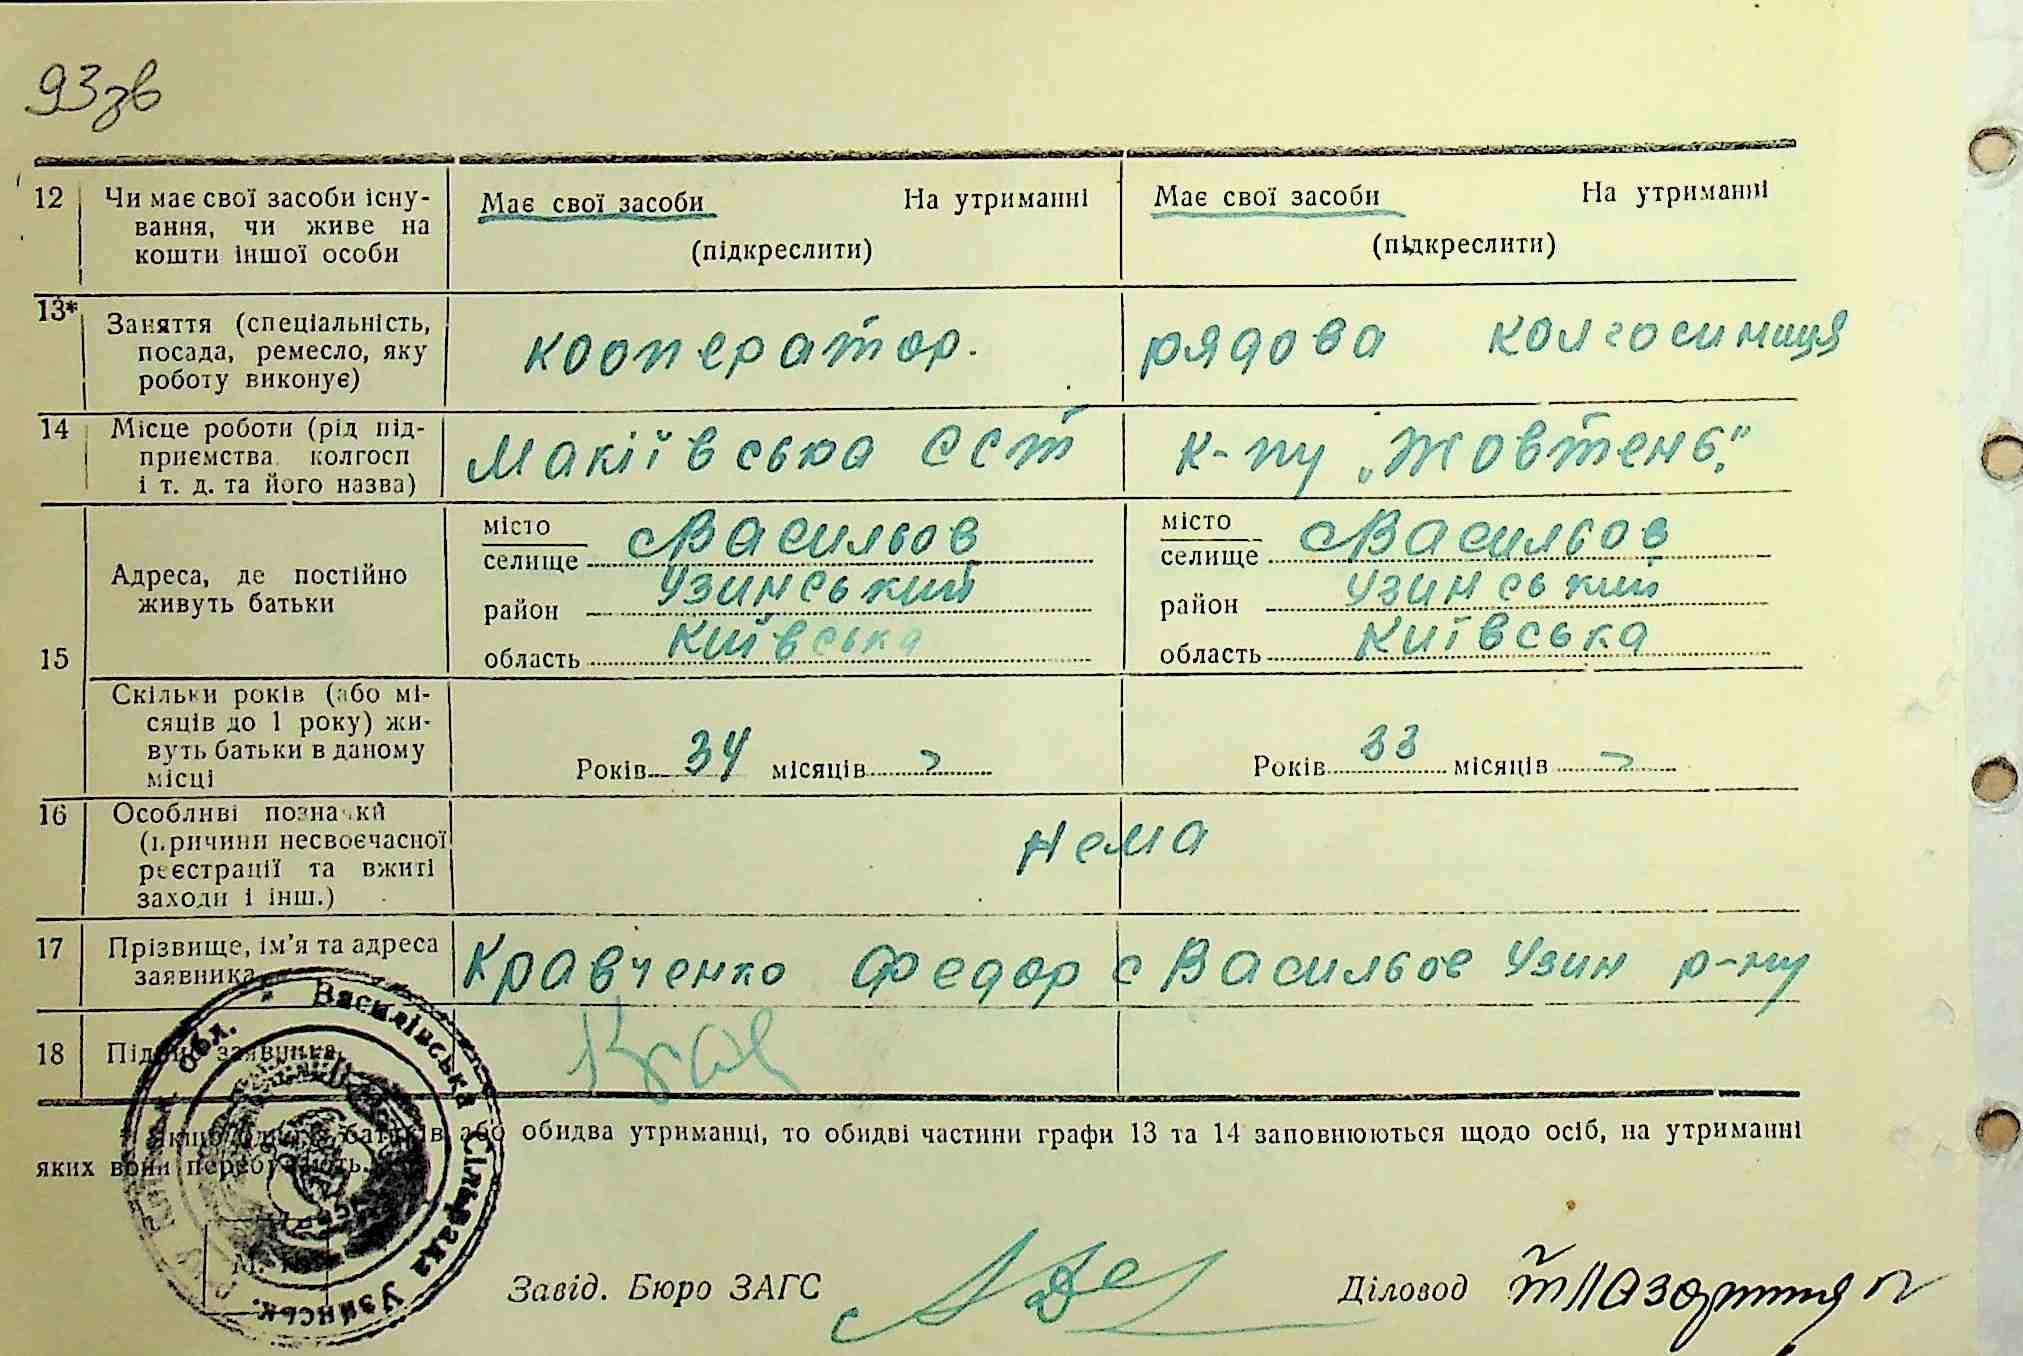 93зв
12 Чи має свої засоби існу-
вання, чи живе на
кошти іншої особи
Має свої засоби На утриманні
(підкреслити)
Має свої засоби На утриманні
(підкреслити)
13* Заняття (спеціальність,
посада, ремесло, яку
роботу виконує)
кооператор.
рядова колгоспниця
14 Місце роботи (рід під-
приємства, колгосп
і т. д. та його назва)
Макіївська ССТ
к-пу „Жовтень".
15
Адреса, де постійно
живуть батьки
місто
селище с Васильов
район Узинський
область Київська
місто
селище с Васильов
район Узинський
область Київська
Скільки років (або мі-
сяців до 1 року) жи-
вуть батьки в даному
місці
Років 34 місяців
Років 33 місяців
16 Особливі позначки
(причини несвоєчасної
реєстрації та вжиті
заходи і інш.)
Нема
17 Прізвище, ім'я та адреса
заявника
Кравченко Федор с Васильов Узин р-ну
18 Підпис заявника
Крав
Якщо один з батьків або обидва утриманці, то обидві частини графи 13 та 14 заповнюються щодо осіб, на утриманні
яких вони перебувають.
Василівська Сільрада Узинськ.
Обл.
М.
Завід. Бюро ЗАГС
Діловод